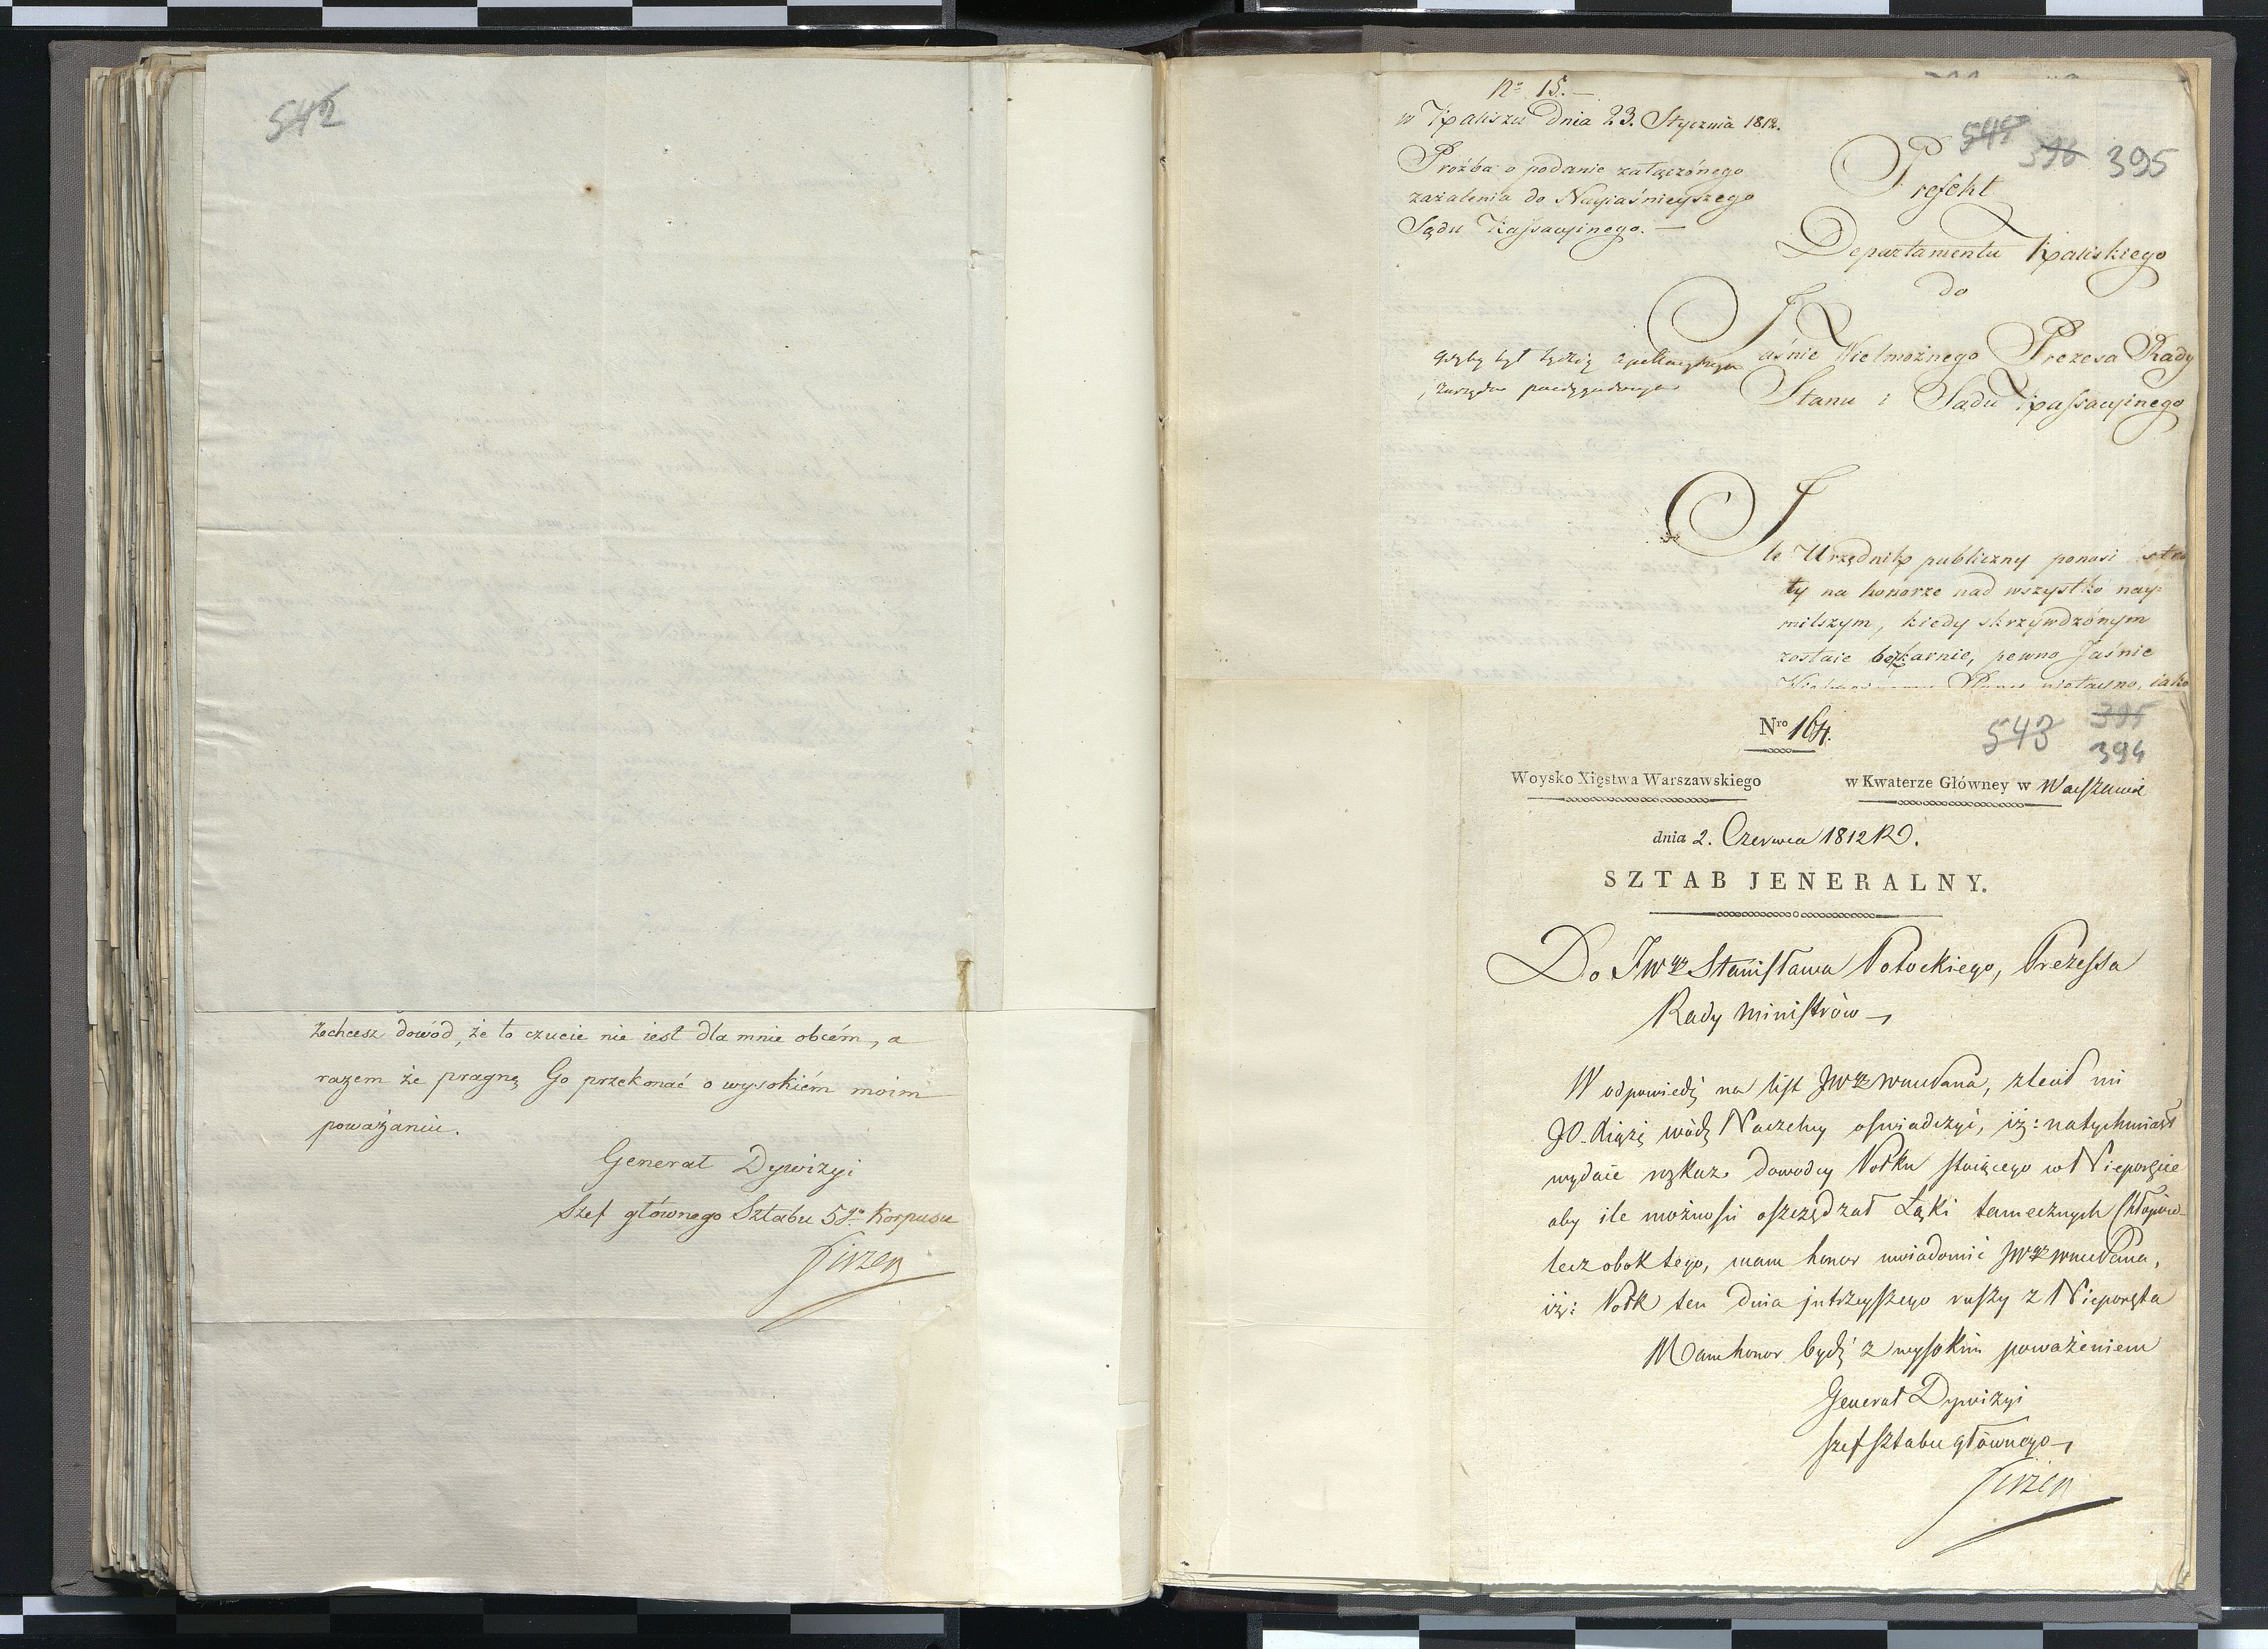 542
zechcesz dowód, że to czucie nie iest dla mnie obcém, a
razem że pragnę Go przekonać o wysokiém moim
poważaniu.
Generał Dywizyi
Szef głównego Sztabu 5go Korpusu
Fiszer
No 15.—
w Kaliszu dnia 23. Stycznia 1812.
Proźba o podanie załączónego
zażalenia do Nayiaśnieyszego
Sądu Kassacyinego. —
545 396 395
Prefekt
Departamentu Kaliskiego
do
Jaśnie Wielmożnego Prezesa Rady
Stanu i Sądu Kassacyinego
Ile Urzędnik publiczny ponosi
ty na honorze nad wszystko nay-
milszym, kiedy skrzywdzónym
zostaie bezkarnie, pewno Jaśnie
Nro 164.
543 395
394
Woysko Xięstwa Warszawskiego w Kwaterze Główney w Warszawie
dnia 2. Czerwca 1812 R.
SZTAB JENERALNY.
Do JWgo Stanisława Potockiego, Prezessa
Rady Ministrów
W odpowiedź na list JWgo Pana, zlecił mi
JO. Xiążę wódz Naczelny oświadczyć, iż: natychmiast
wydaie rozkaz dowodcy Półku stoiącego w Nieporęcie
aby ile możności oszczędzał Łąki tamecznych Chłopów
lecz obok tego, mam honor uwiadomić JWgo Pana,
iż: Półk ten dnia jutrzeyszego ruszy z Nieporęta
Mam honor bydź z wysokim poważeniem
Generał Dywizyi
szef sztabu głównego
Fiszer